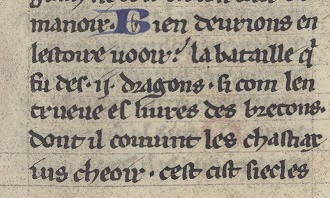 manoir. Bien deurions en
lestoire ueoir. la bataille q̄
fu des .ij. dragons. si com len
trueue es liures des bretons.
dont il couuint les chastiax
ius cheoir. cest cist siecles